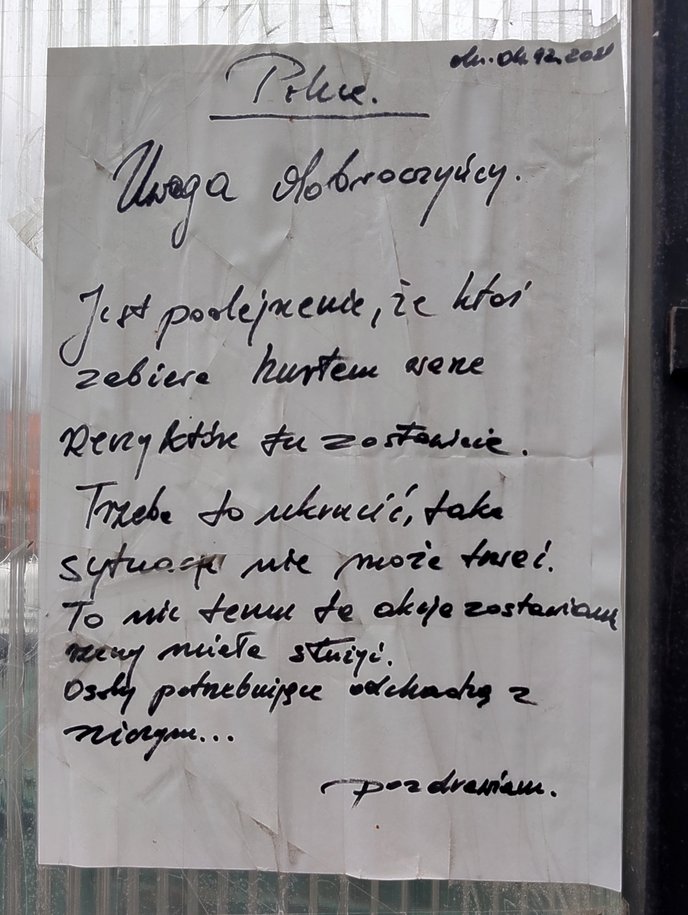 dn. 04.12.2021
Police.
Uwaga dobroczyńcy.
Jest podejrzenie, że ktoś
zabiera hurtem wasze
rzeczy które tu zostawicie.
Trzeba to ukrucić, taka
sytuacja nie może trwać.
To nie temu ta akcja zostawiania
rzeczy miała służyć.
Osoby potrzebujące odchodzą z
niczym...
pozdrawiam.